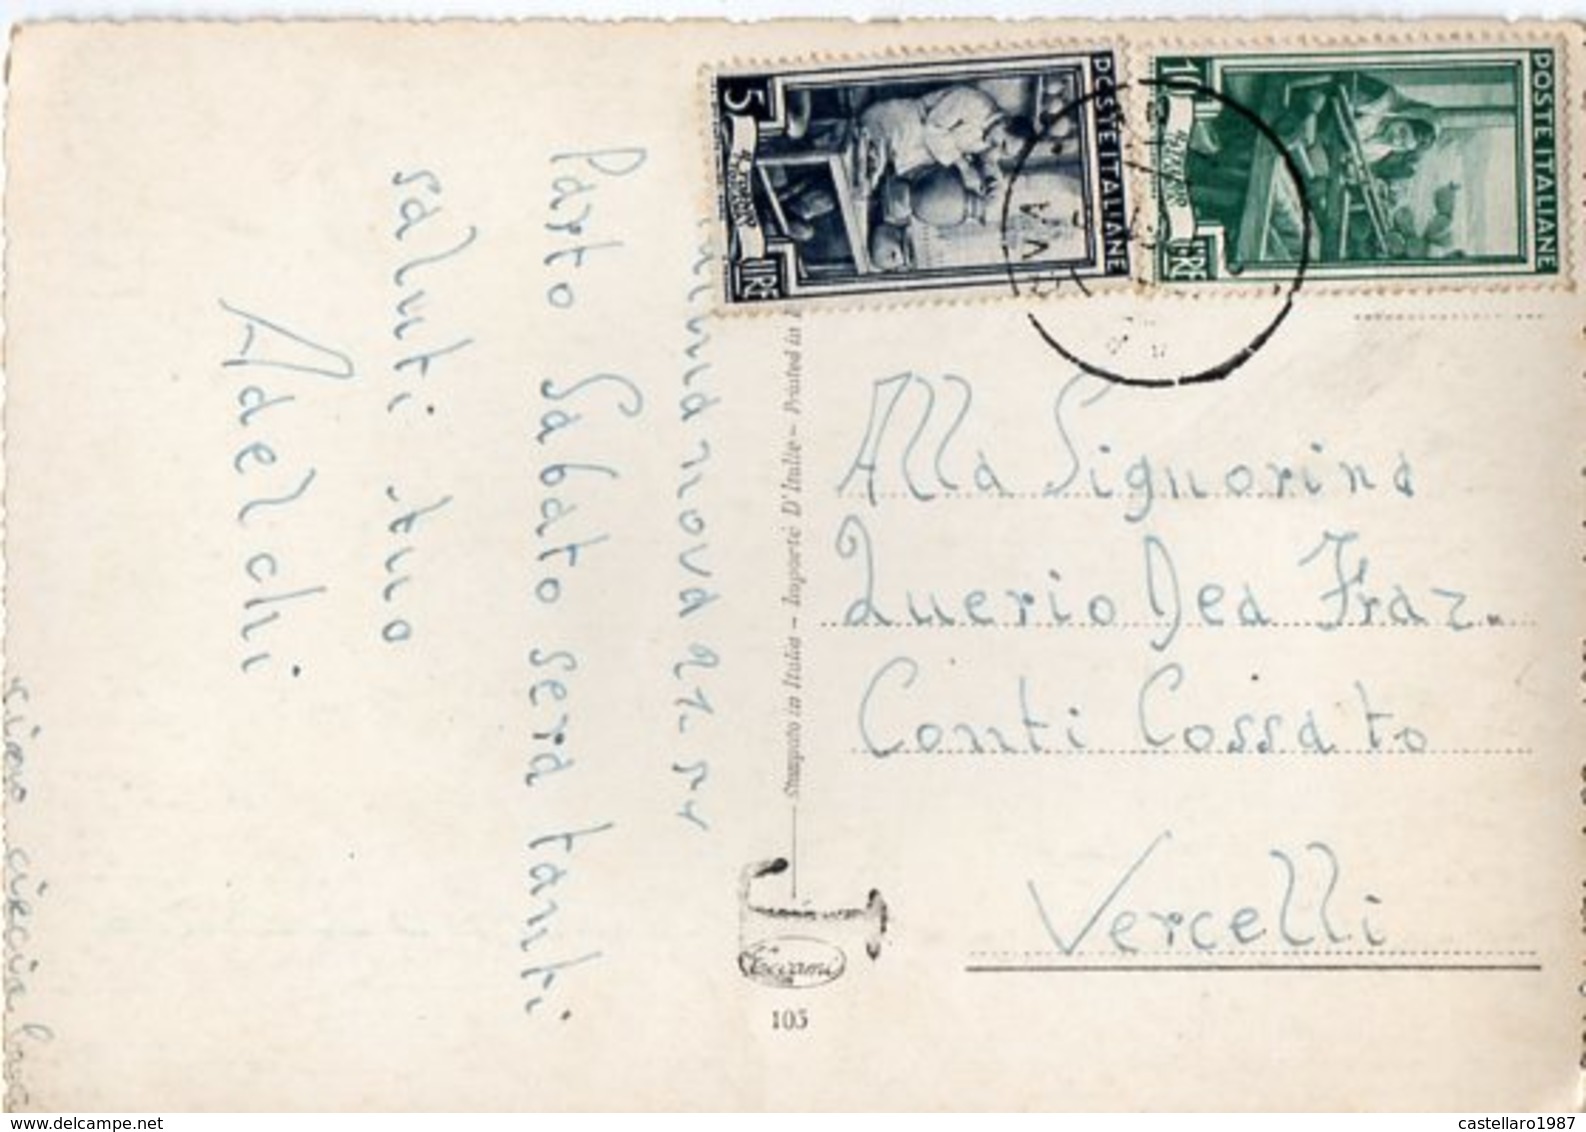 POSTE ITALIANE
5
LIRE
POSTE ITALIANE
10
LIRE
nova 21
Parto Sabato sera tanti
saluti tuo
Adelchi
Stampato in Italia - Importé D'Italie - Printed in
Alla Signorina
Querio Dea Fraz.
Conti Cossato
Vercelli
103
www.delcampe.net
castellaro1987